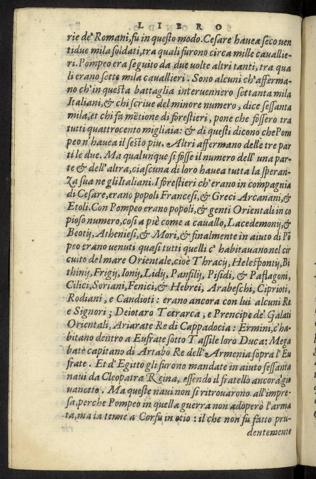 LIBRO
rie de' Romani, fu in questo modo. Cesare hauea seco uen
tidue mila soldati, tra quali furono circa mille cauallie-
ri. Pompeo era seguito da due uolte altri tanti, tra qua
li erano sette mila cauallieri. Sono alcuni ch'afferma-
no ch'in questa battaglia interuennero settanta mila
Italiani, & chi scriue del minore numero, dice sessanta
mila, et chi fa mētione di forestieri, pone che fossero tra
tutti quattrocento migliaia: & di questi dicono che Pom
peo n'hauea il sesto piu. Altri affermano delle tre par
ti le due. Ma qualunque si fosse il numero dell'una par-
te & dell'altra, ciascuna di loro hauea tutta la speran-
za sua ne gli Italiani. I forestieri ch'erano in compagnia
di Cesare, erano popoli Francesi, & Greci Arcanani, &
Etoli. Con Pompeo erano popoli, & genti Orientali in co
pioso numero, cosi a piè come a cauallo, Lacedemonij, &
Beotij, Atheniesi, & Mori, & finalmente in aiuto di Pō
peo erano uenuti quasi tutti quelli c'habitauano nel cir
cuito del mare Orientale, cioè Thracij, Helespontij, Bi
thinij, Frigij, Ionij, Lidij, Panfilij, Pisidi, & Paflagoni,
Cilici, Soriani, Fenici, & Hebrei, Arabeschi, Ciprioti,
Rodiani, e Candioti: erano ancora con lui alcuni Re
e Signori; Deiotaro Tetrarca, e Prencipe de' Galati
Orientali, Ariarate Re di Cappadocia: Ermini, c'ha-
bitano dentro a Eufrate sotto Tassile loro Duca; Mega
bate capitano di Artabo Re dell'Armenia sopra l'Eu
frate. Et d'Egitto gli furono mandate in aiuto sessanta
naui da Cleopatra Reina, essendo il fratello ancora gio
uanetto. Ma queste naui non si ritrouarono all'impre-
sa, perche Pompeo in quella guerra non adoperò l'arma
ta, ma la tenne a Corfù in otio: il che non fu fatto pru-
dentemente